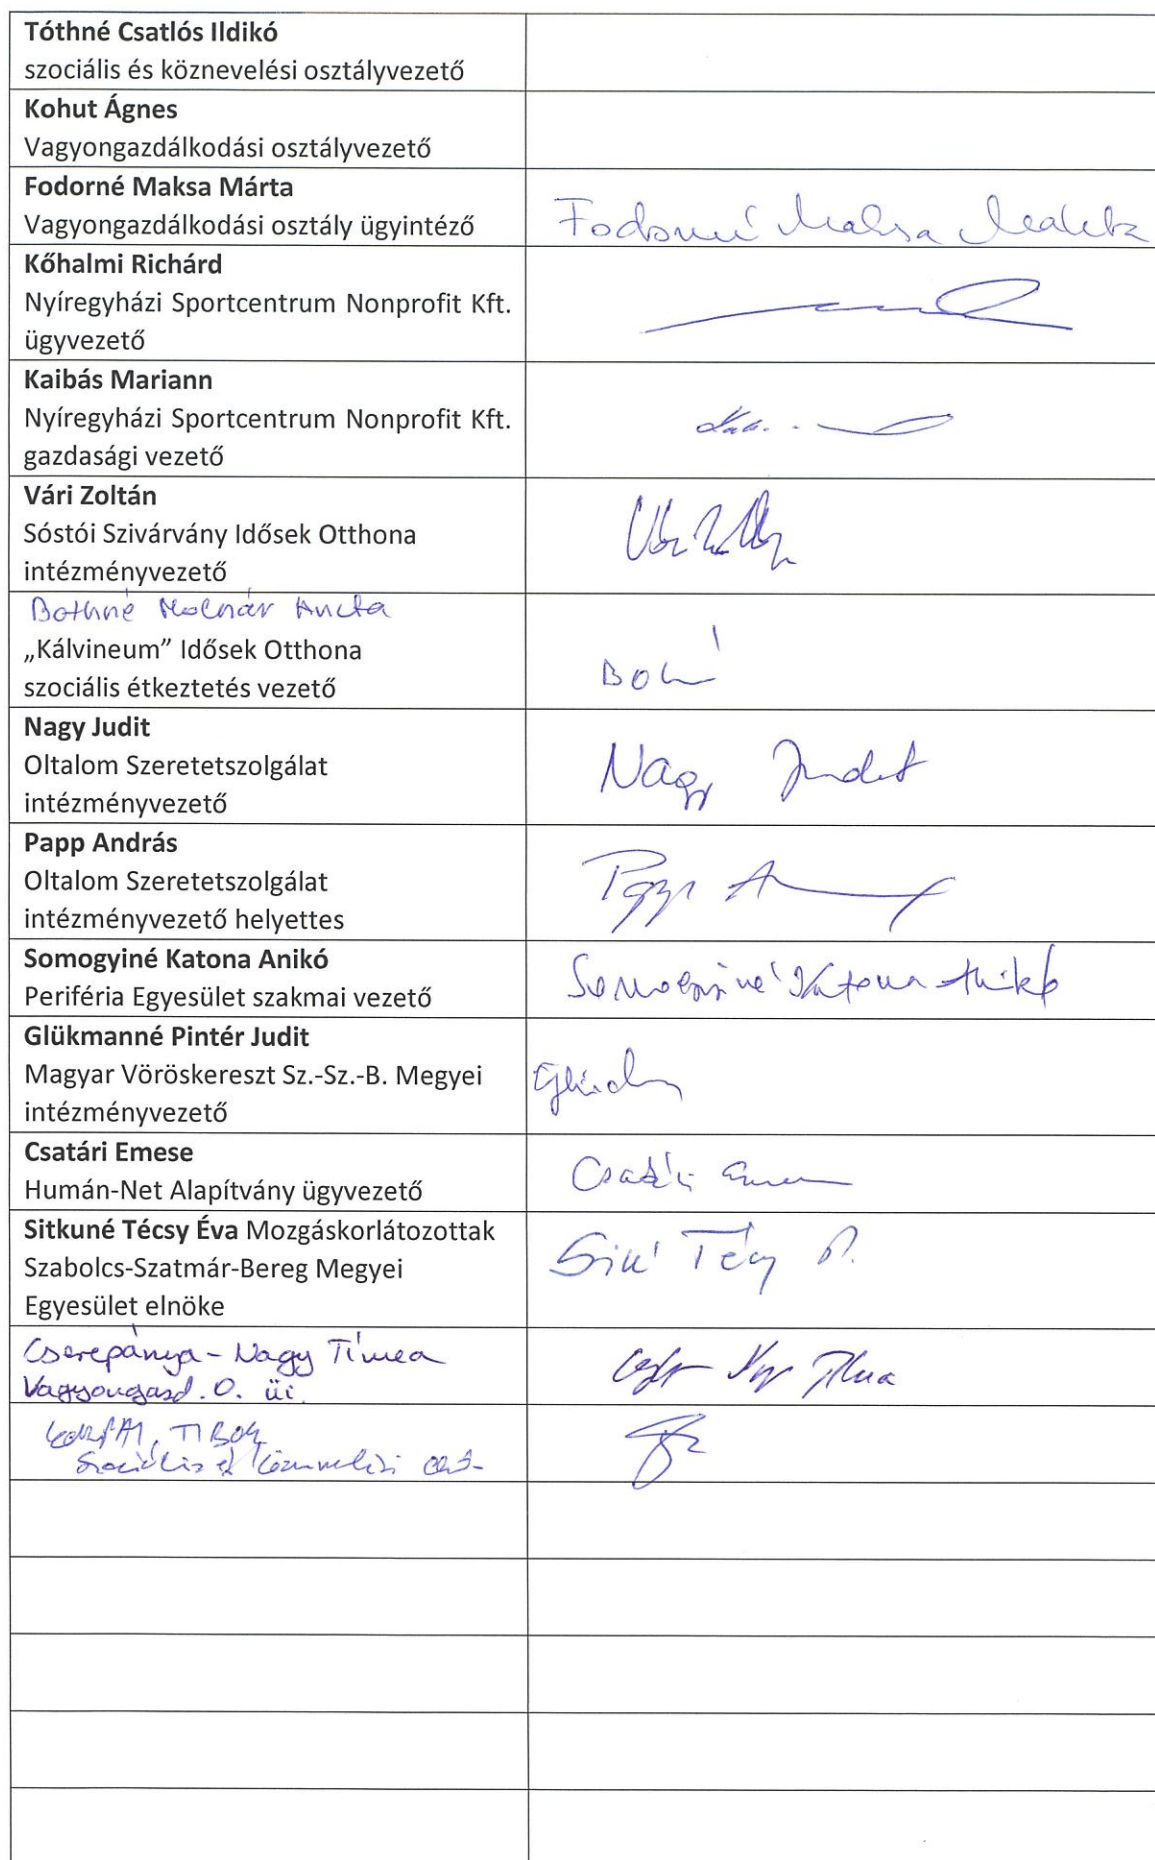 Tóthné Csatlós Ildikó
szociális és köznevelési osztályvezető
Kohut Ágnes
Vagyongazdálkodási osztályvezető
Fodorné Maksa Márta
Vagyongazdálkodási osztály ügyintéző
Fodorné Maksa Márta
Kőhalmi Richárd
Nyíregyházi Sportcentrum Nonprofit Kft.
ügyvezető
Kaibás Mariann
Nyíregyházi Sportcentrum Nonprofit Kft.
gazdasági vezető
Vári Zoltán
Sóstói Szivárvány Idősek Otthona
intézményvezető
Bothné Molnár Aneta
„Kálvineum” Idősek Otthona
szociális étkeztetés vezető
Nagy Judit
Oltalom Szeretetszolgálat
intézményvezető
Nagy Judit
Papp András
Oltalom Szeretetszolgálat
intézményvezető helyettes
Papp
Somogyiné Katona Anikó
Periféria Egyesület szakmai vezető
Somogyiné Katona Anikó
Glükmanné Pintér Judit
Magyar Vöröskereszt Sz.-Sz.-B. Megyei
intézményvezető
Csatári Emese
Humán-Net Alapítvány ügyvezető
Csatári
Sitkuné Técsy Éva Mozgáskorlátozottak
Szabolcs-Szatmár-Bereg Megyei
Egyesület elnöke
Cserepánya-Nagy Tímea
Vagyongazd. O. üi.
Nagy Tímea
TIBOR
Szociális és Köznevelési Oszt.